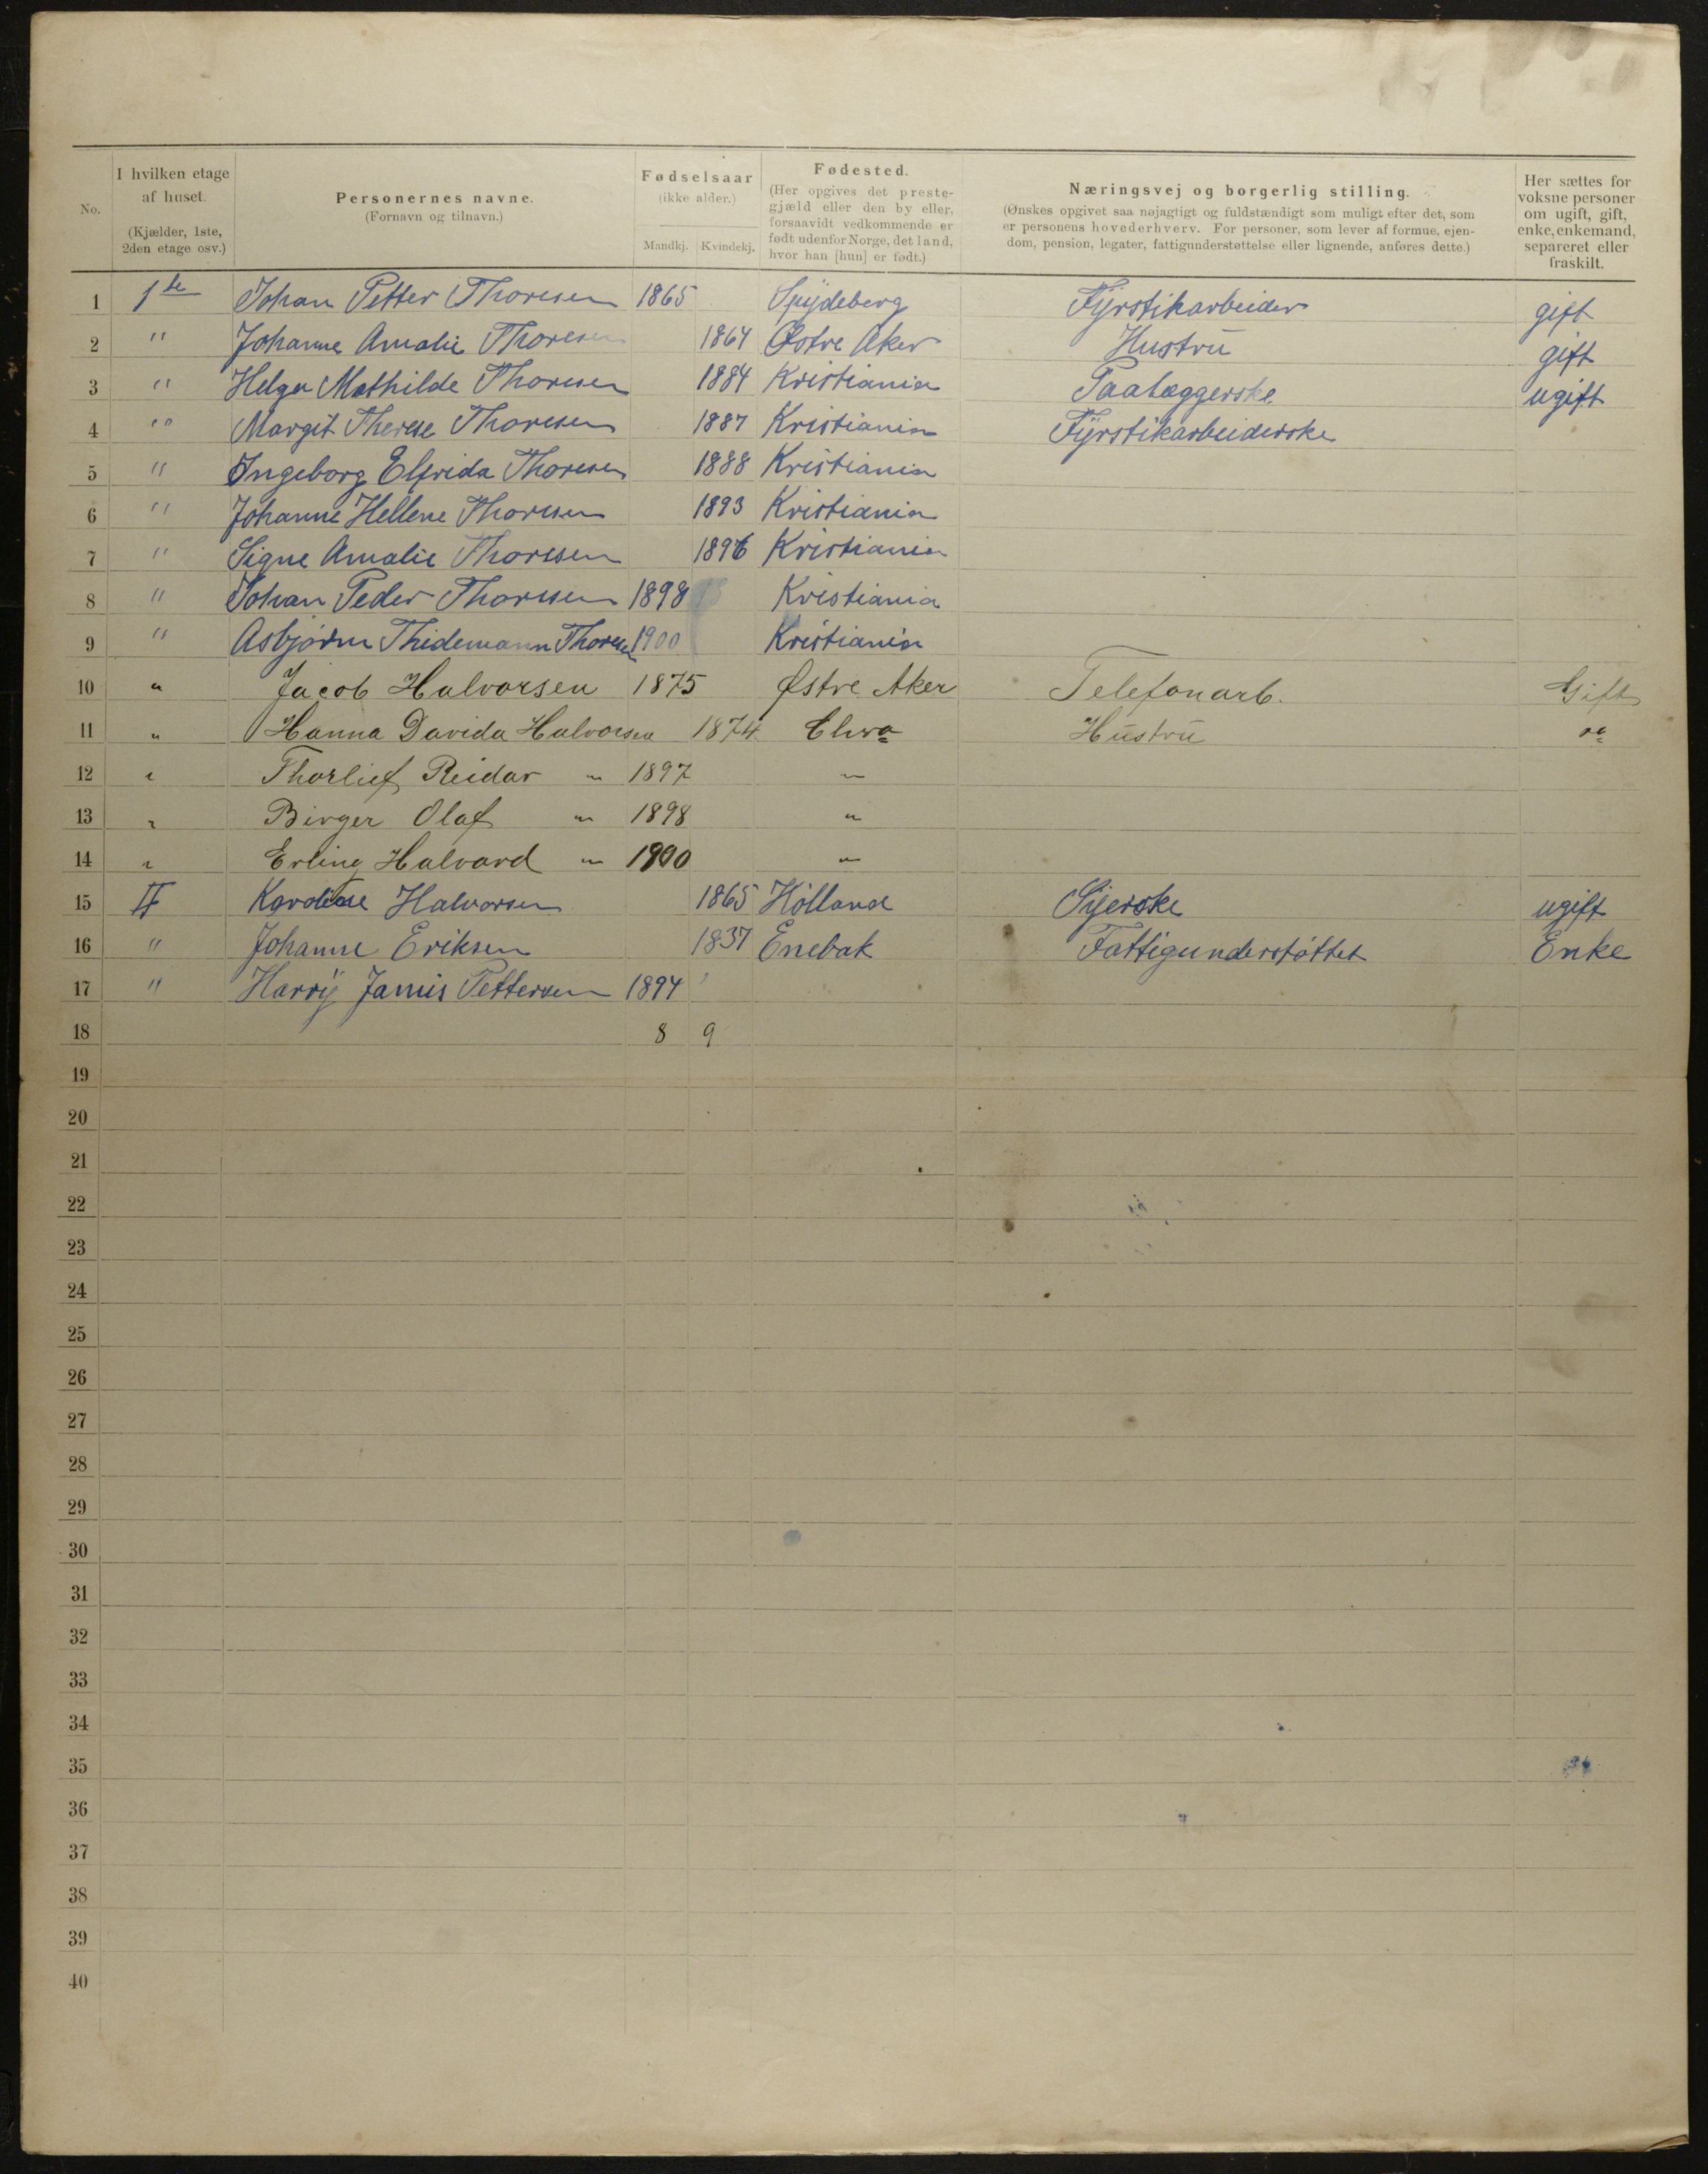 No. | I hvilken etage af huset. (Kjælder, 1ste, 2den etage osv.) | Personernes navne. (Fornavn og tilnavn.) | Fødselsaar (ikke alder.) Mandkj. Kvindekj. | Fødested. (Her opgives det prestegjæld eller den by eller, forsaavidt vedkommende er født udenfor Norge, det land, hvor han [hun] er født.) | Næringsvej og borgerlig stilling. (Ønskes opgivet saa nøjagtigt og fuldstændigt som muligt efter det, som er personens hovederhverv. For personer, som lever af formue, ejendom, pension, legater, fattigunderstøttelse eller lignende, anføres dette.) | Her sættes for voksne personer om ugift, gift, enke, enkemand, separeret eller fraskilt.
1 1ste Johan Petter Thoresen 1865 Spydeberg Fyrstikarbeider gift
2 " Johanne Amalie Thoresen 1864 Østre Aker Hustru gift
3 " Helga Mathilde Thoresen 1884 Kristiania Paalæggerske ugift
4 " Margit Therese Thoresen 1887 Kristiania Fyrstikarbeiderske
5 " Ingeborg Elfrida Thoresen 1888 Kristiania
6 " Johanne Hellene Thoresen 1893 Kristiania
7 " Signe Amalie Thoresen 1896 Kristiania
8 " Johan Peder Thoresen 1898 Kristiania
9 " Asbjørn Thidemann Thoresen 1900 Kristiania
10 " Jacob Halvorsen 1875 Østre Aker Telefonarb. Gift
11 " Hanna Davida Halvorsen 1874 Chra Hustru
12 " Thorlief Reidar " 1897 "
13 " Birger Olaf " 1898 "
14 " Erling Halvard " 1900 "
15 II Karoline Halvorsen 1865 Hølland Syerske ugift
16 " Johanne Eriksen 1837 Enebak Fattigunderstøttet Enke
17 " Harry Jamis Pettersen 1894
18 8 9
19
20
21
22
23
24
25
26
27
28
29
30
31
32
33
34
35
36
37
38
39
40